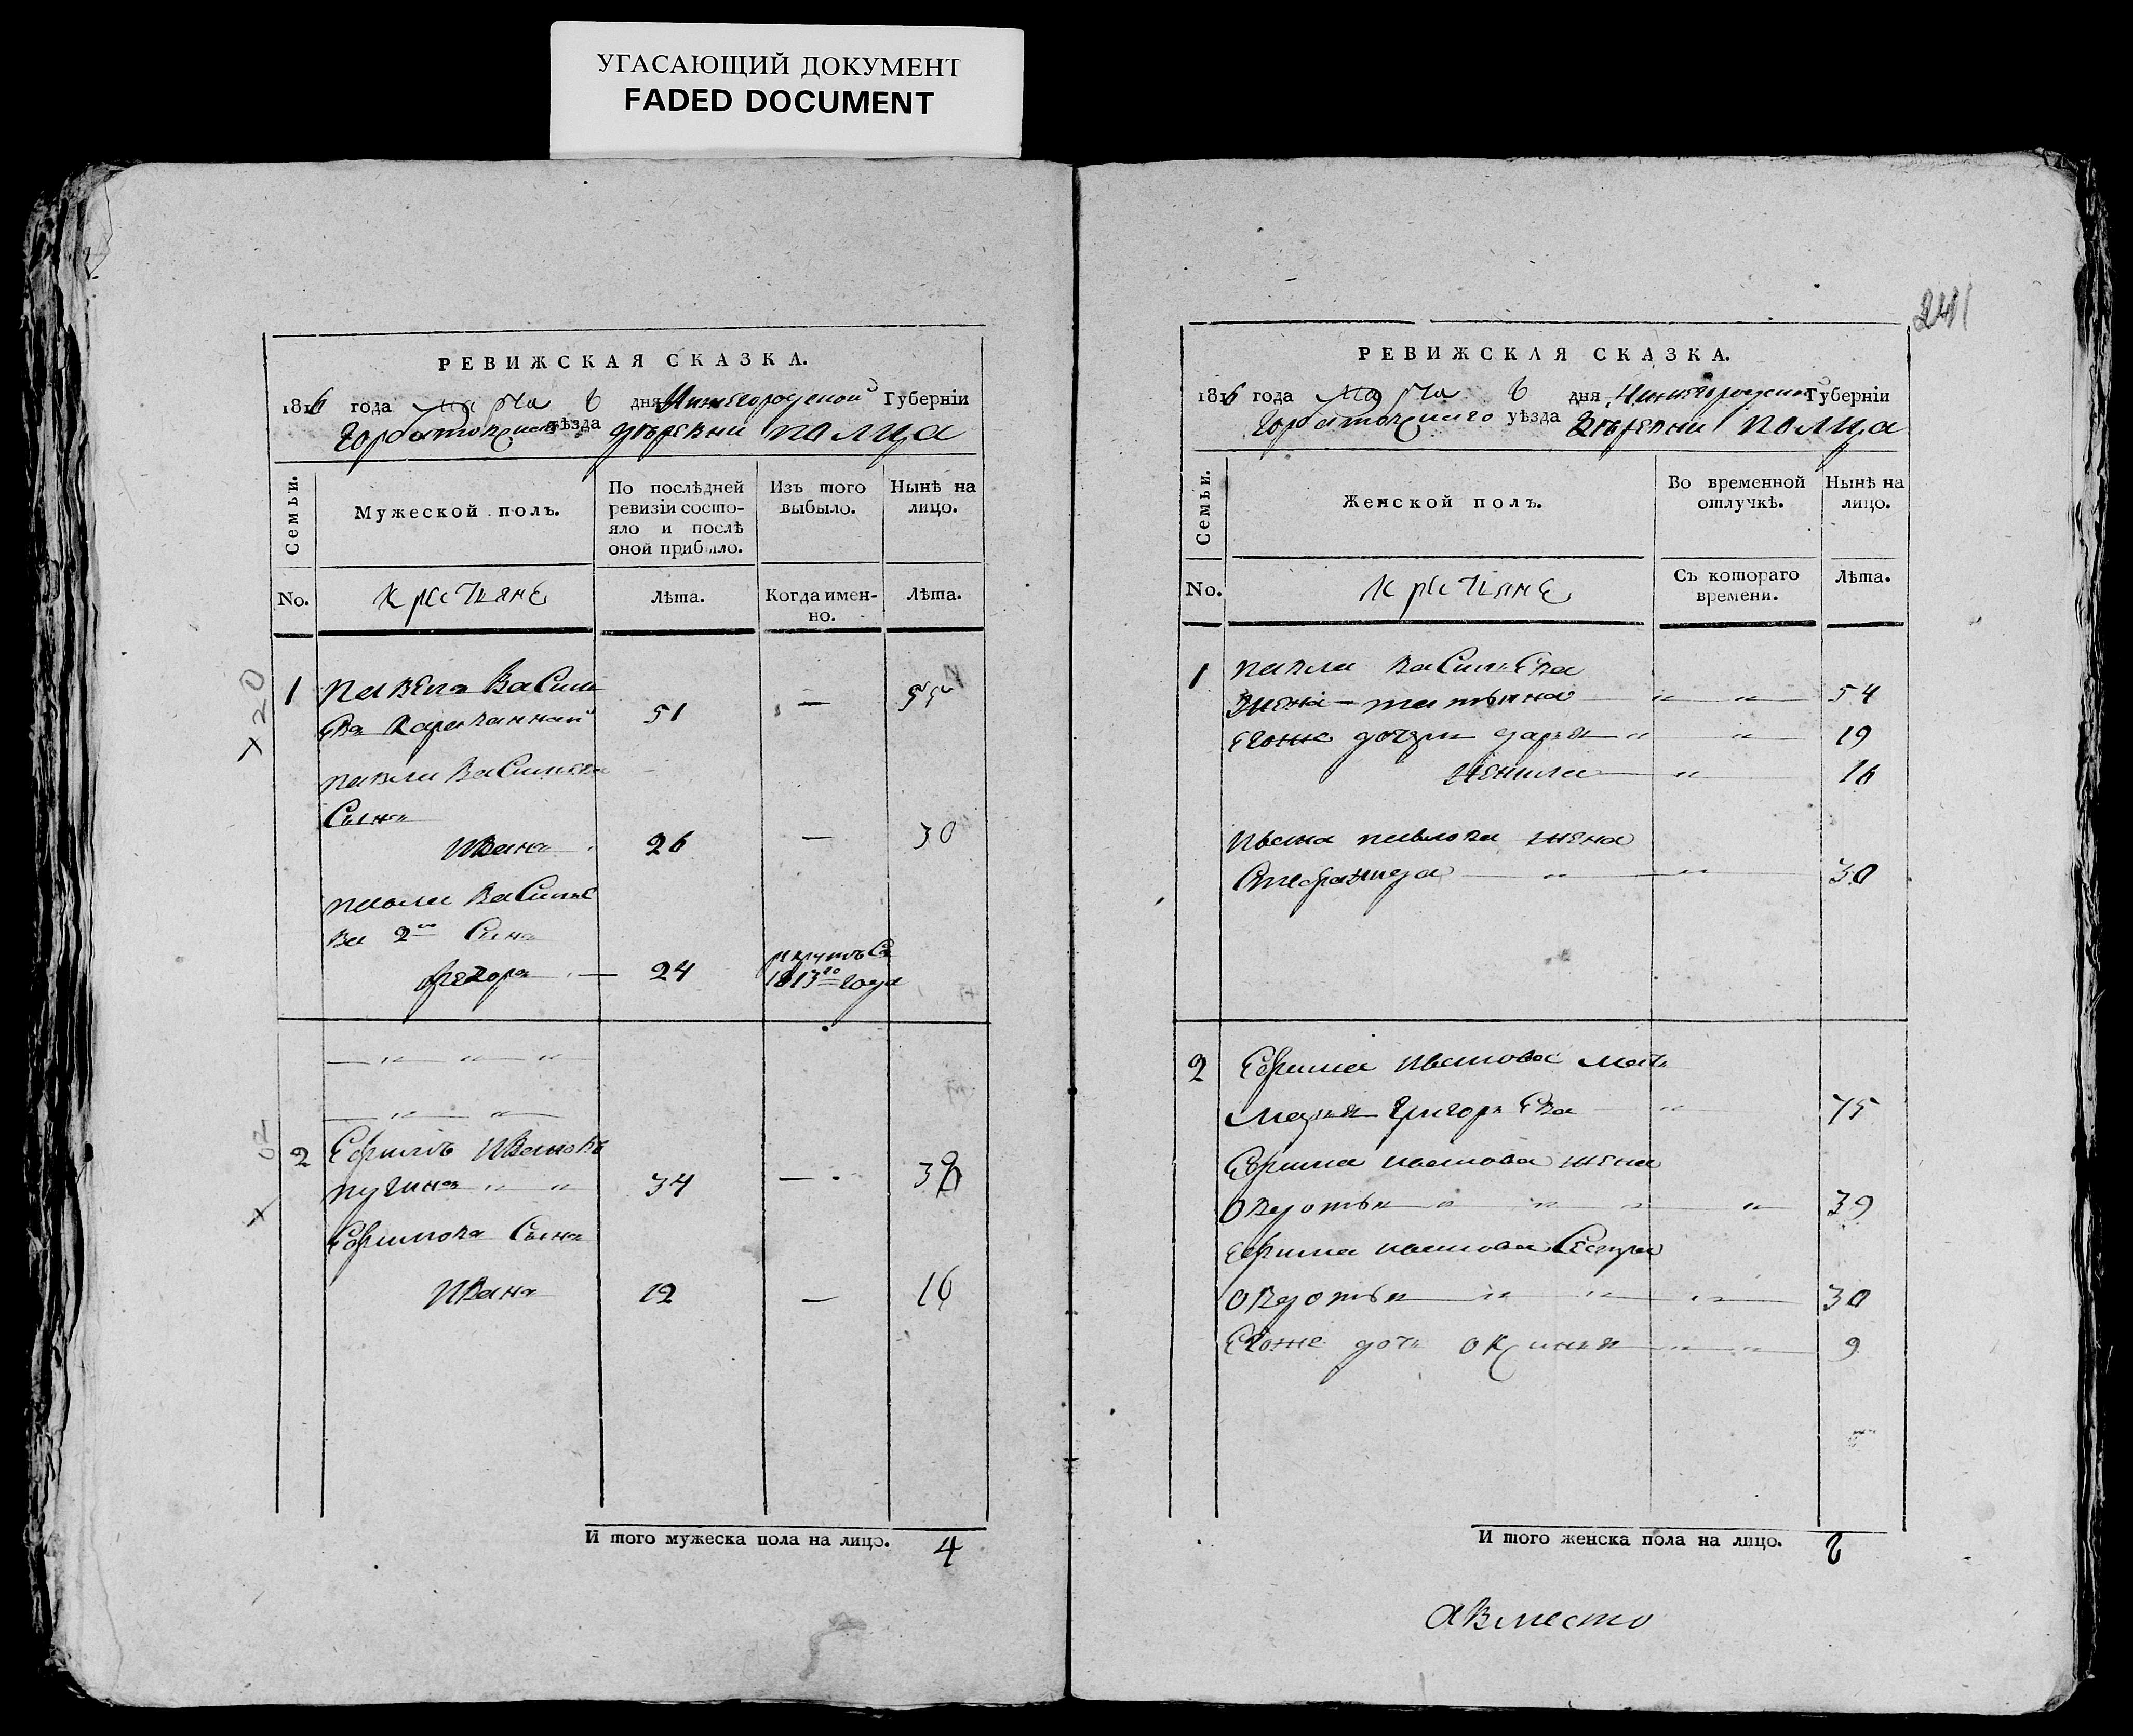 УГАСАЮЩИЙ ДОКУМЕНТ
FADED DOCUMENT
РЕВИЖСКАЯ СКАЗКА.
1816 года Марта 6 дня Нижегородской Губерніи
Горбатовской уѣзда дѣревни Полца
Семьи.
Мужеской полъ.
По послѣдней ревизіи состо-
яло и послѣ
оной прибыло.
Изъ того
выбыло.
Нынѣ на
лицо.
No.
крстьянѣ
Лѣта.
Когда имен-
но.
Лѣта.
1 Павелъ Василь
евъ 51 — 55
Павла Васильева
Сынъ
Иванъ 26 — 30
Павла Василье
ва 2й Сынъ
Федоръ — 24 1813го года
2 Ефимъ Ивановъ
34 —
Ефимова Сынъ
Иванъ 12 — 16
И того мужеска пола на лицо. 4
241
РЕВИЖСКАЯ СКАЗКА.
1816 года Марта 6 дня Нижегородской Губерніи
Горбатовскаго уѣзда дѣревни Полца
Семьи.
Женской полъ.
Во временной
отлучкѣ.
Нынѣ на
лицо.
No.
крстьянѣ
Съ котораго
времени.
Лѣта.
1 Павла Васильева
жена — татьяна 54
Егоже дочери дарья 19
Ненила 16
Ивана павлова жена
30
2 Ефима Иванова мать
Марья Григорьева 75
Ефима иванова жена
овдотья 39
Ефима иванова Сестра
овдотья 30
Егоже дочь оксинья 9
И того женска пола на лицо. 8
авместо